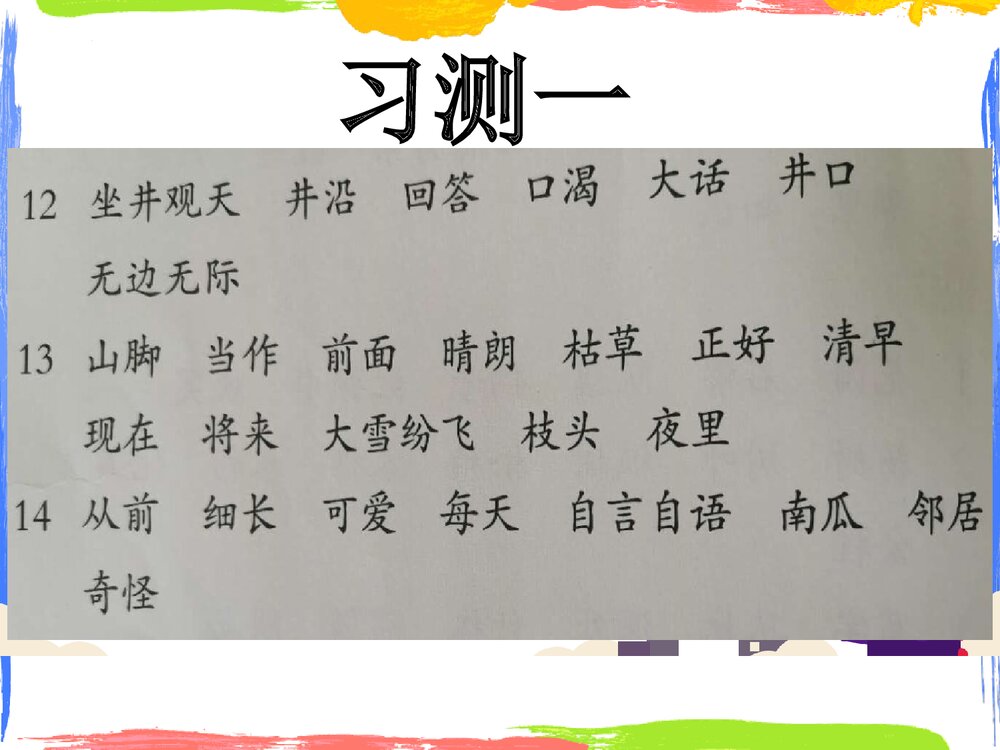 习测一
12 坐井观天 井沿 回答 口渴 大话 井口
无边无际
13 山脚 当作 前面 晴朗 枯草 正好 清早
现在 将来 大雪纷飞 枝头 夜里
14 从前 细长 可爱 每天 自言自语 南瓜 邻居
奇怪